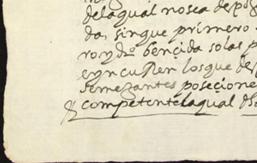 delaqual nosea de po
da, sin que primero
ro y do bençida solas p
e yncurren los que des
semejantes posecione
& competente laqual